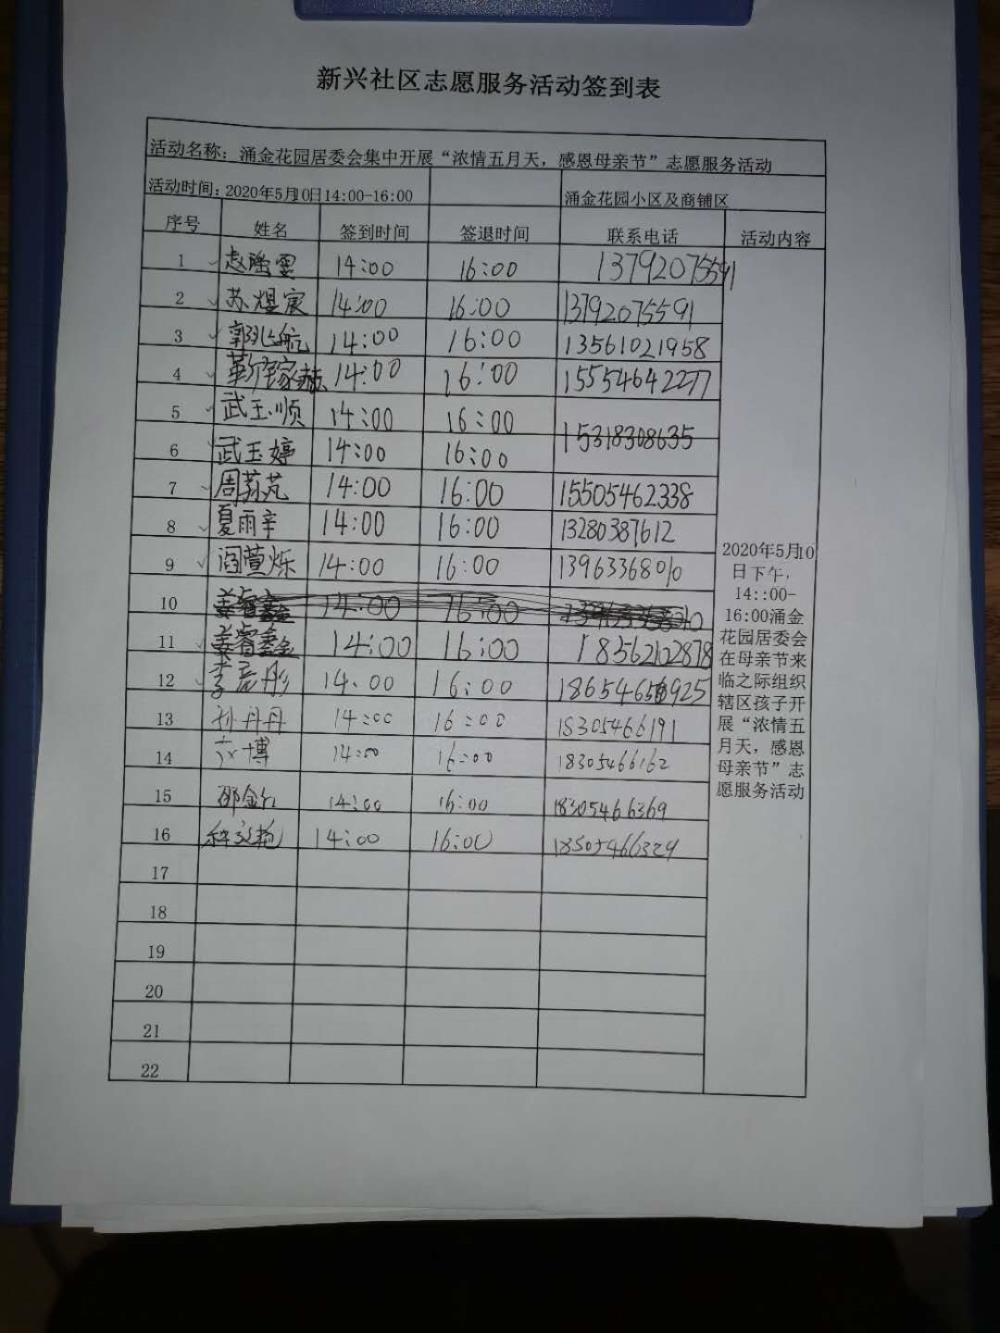 新兴社区志愿服务活动签到表
活动名称：涌金花园居委会集中开展“浓情五月天，感恩母亲节”志愿服务活动
活动时间：2020年5月10日14:00-16:00 涌金花园小区及商铺区
序号 姓名 签到时间 签退时间 联系电话 活动内容
1 赵瑞雲 14:00 16:00 13792075591
2 苏煜宸 14:00 16:00 13792075591
3 郭兆航 14:00 16:00 13561021958
4 靳家赫 14:00 16:00 15554642277
5 武玉顺 14:00 16:00 15318308635
6 武玉婷 14:00 16:00
7 周芬芃 14:00 16:00 15505462338
8 夏雨辛 14:00 16:00 13280387612
9 阎萱烁 14:00 16:00 13963368010
10 14:00 16:00
11 姜睿鑫 14:00 16:00 18562102878
12 李彦彤 14:00 16:00
13 孙丹丹 14:00 16:00 18305466191
14 博 14:00 16:00 18305466162
15 邵金 14:00 16:00 18305466369
16 14:00 16:00 18505466329
17
18
19
20
21
22
2020年5月10
日下午，
14::00-
16:00涌金
花园居委会
在母亲节来
临之际组织
辖区孩子开
展“浓情五
月天，感恩
母亲节”志
愿服务活动